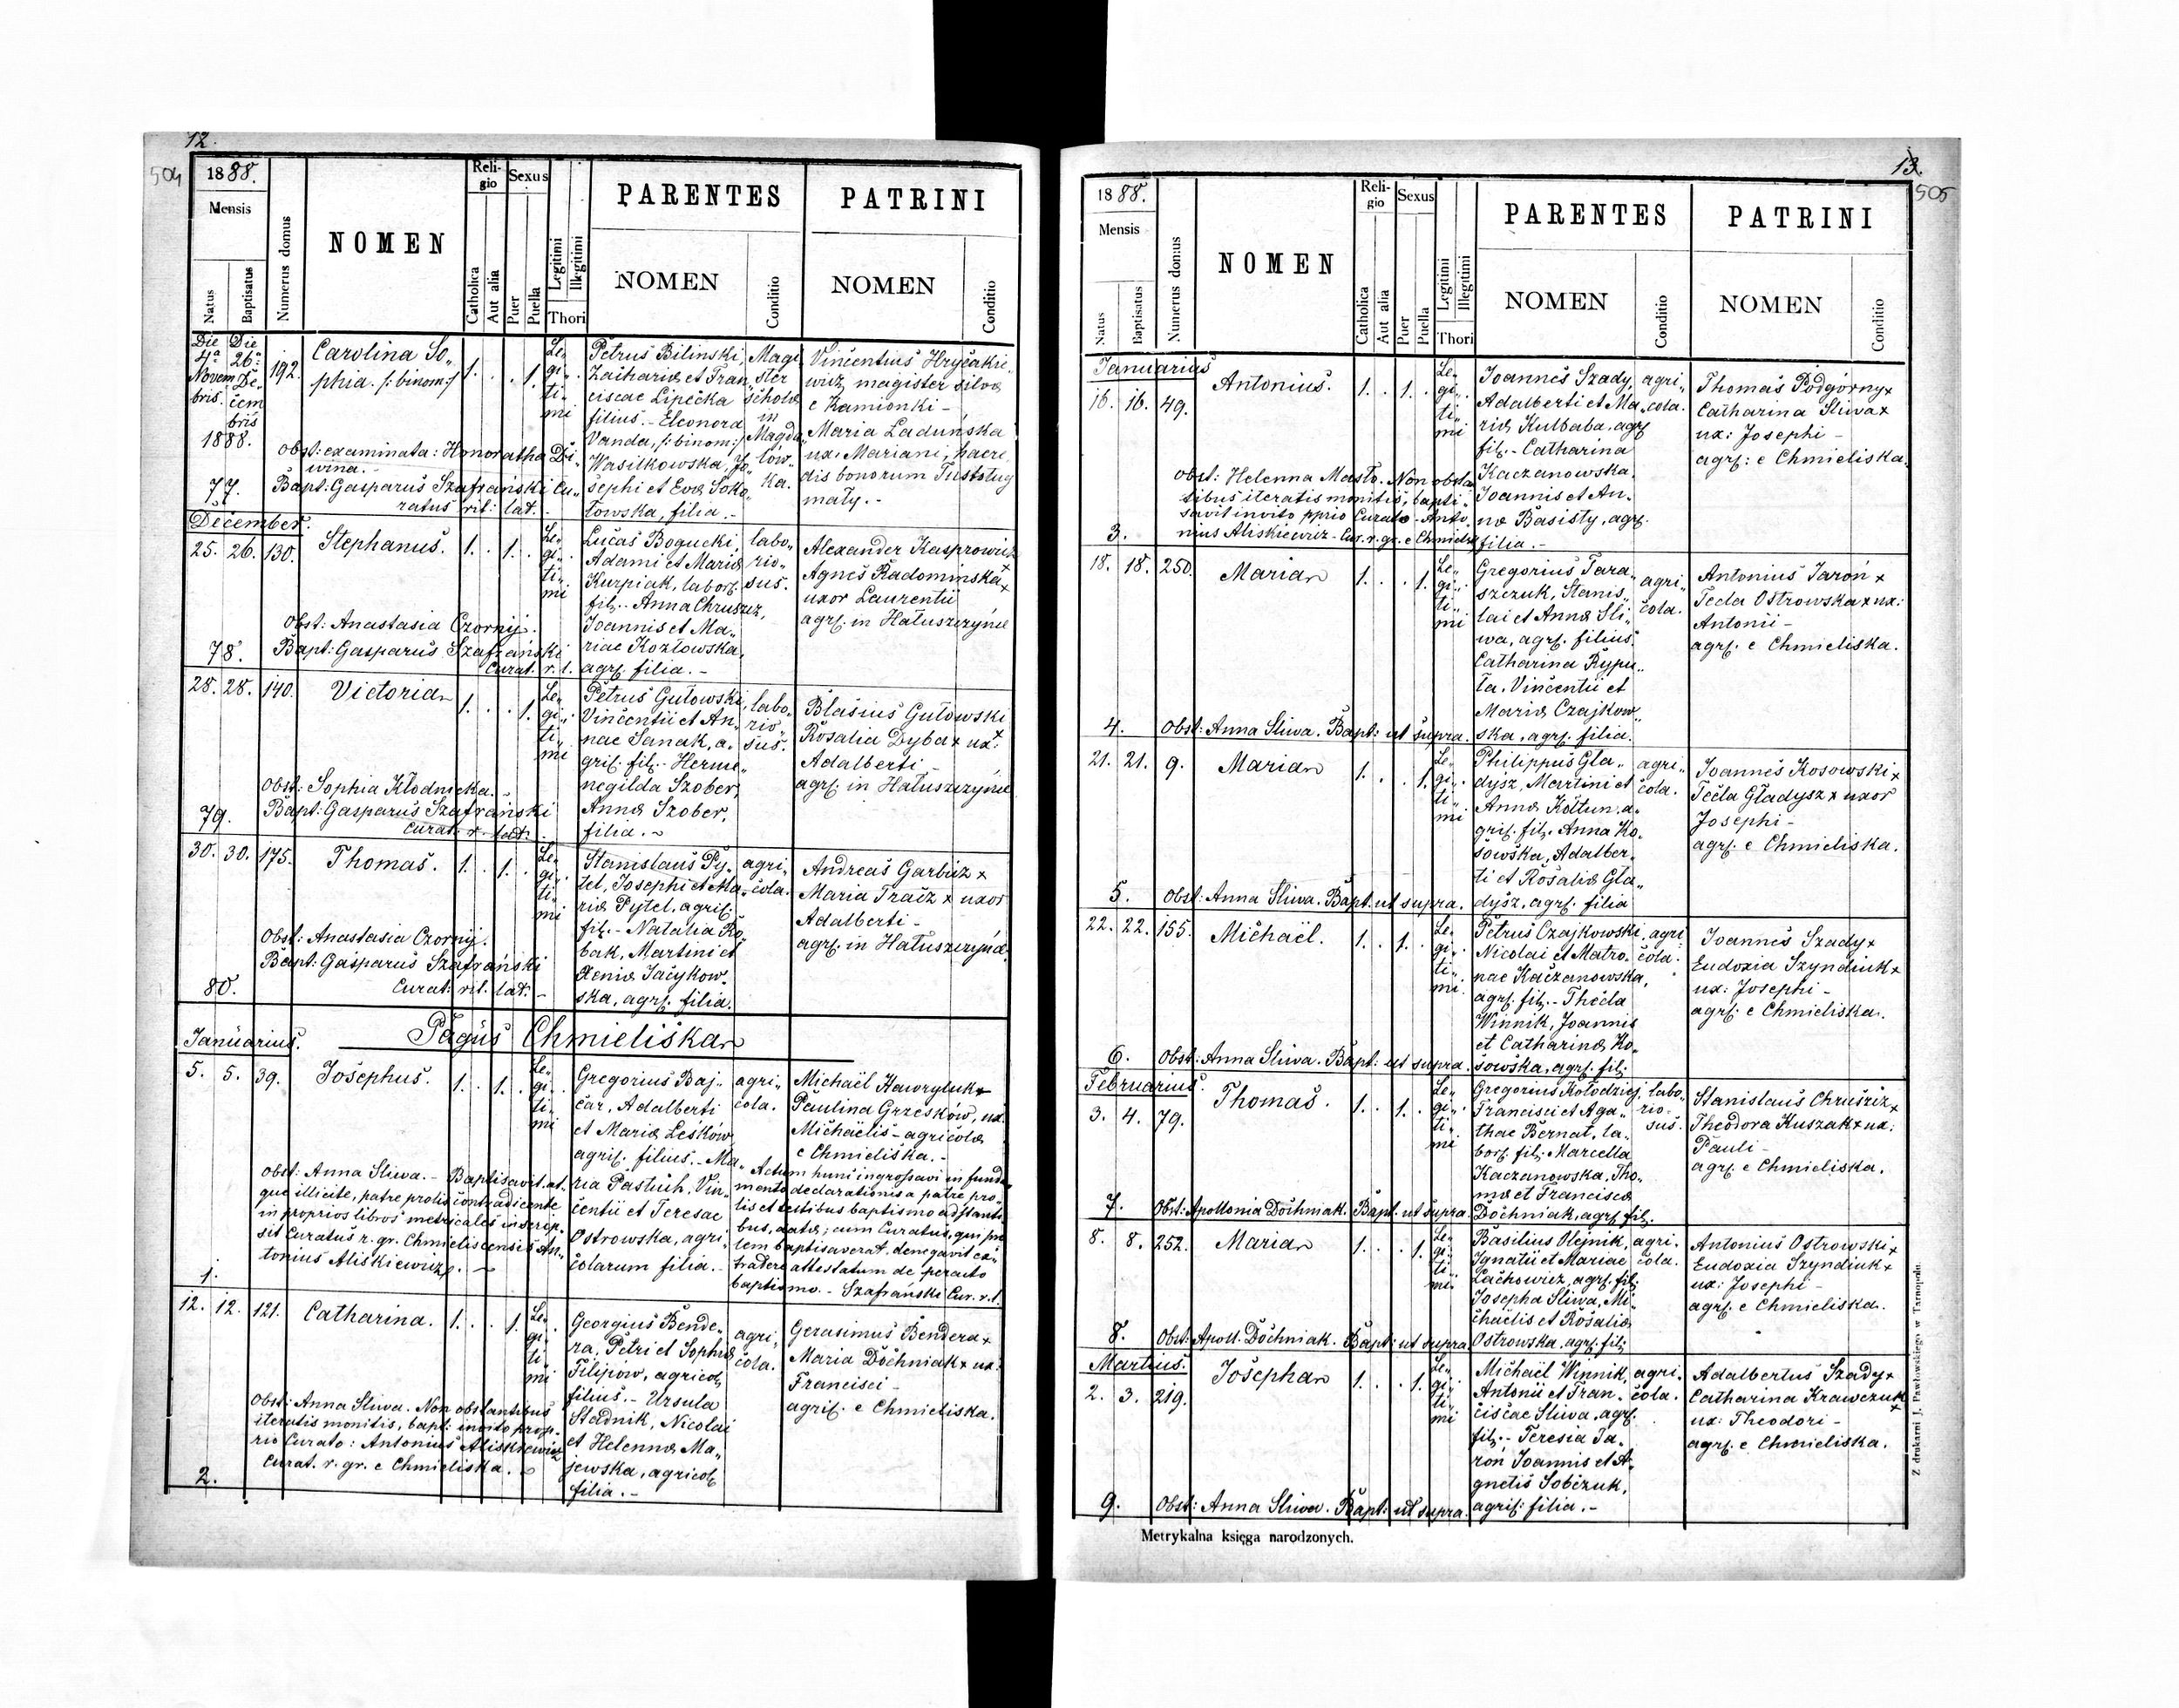 12.
504
1888.
Mensis
Natus
Baptisatus
Numerus domus
NOMEN
Religio
Catholica
Aut alia
Sexus
Puer
Puella
Legitimi
Illegitimi
Thori
PARENTES
NOMEN
Conditio
PATRINI
NOMEN
Conditio
Die 4a Novembris.
Die 26a Decembris
1888.
192.
Carolina So„
phia. /: binom:/
1. . . 1.
Le„
gi„
ti„
mi
Petrus Bilinski,
Zachariæ et Fran„
ciscae Lipečka
filius.- Eleonora
Vanda, /: binom:/
Wasilkowska, Jo„
sephi et Evæ Soko„
łowska, filia.-
Magi„
ster
scholæ
in
Magda„
lów„
ka.
Vincentius Hryčakie„
wicz, magister silvæ
e Kamionki -
Maria Laduńska
ux: Mariani, haere„
dis bonorum Tustoług
mały.-
Obst: examinata: Honoratha Di„
wina.-
Bapt: Gasparus Szafrański Cu„
ratus rit: lat.
77.
December.
25. 26. 130.
Stephanus.
1. . 1. .
Le„
gi„
ti„
mi
Lučas Bogucki,
Adami et Mariæ
Kurpiak, laborſ.
filſ.- Anna Chruszcz,
Joannis et Ma„
riae Kozłowska,
agrſ. filia.-
labo„
rio„
sus.
Alexander Kasprowicz +
Agnes Radominska +
uxor Laurentii
agrſ. in Hałuszczyńce
Obst: Anastasia Czornij.
Bapt: Gasparus Szafrański
Curat. r. l.
78.
28. 28. 140.
Victoria
1. . . 1.
Le„
gi„
ti„
mi
Petrus Gutowski,
Vincentii et An„
nae Sanak, a„
griſ. filſ.- Herme„
negilda Szober,
Annæ Szober,
filia.-
labo„
rio„
sus.
Blasius Gutowski +
Rosalia Dyba + ux:
Adalberti -
agrſ. in Hałuszczyńce
Obst: Sophia Kłodnicka.-
Bapt: Gasparus Szafrański
Curat. r. lat.
79.
30. 30. 175.
Thomas.
1. . 1. .
Le„
gi„
ti„
mi
Stanislaus Py„
tel, Josephi et Ma„
riæ Pytel, agriſ.
filſ.- Natalia Ro„
bak, Martini et
Xeniæ Jacykow„
ska, agrſ. filia.
agri„
cola.
Andreas Garbicz +
Maria Tracz + uxor
Adalberti -
agrſ. in Hałuszczyńce
Obst: Anastasia Czornij.
Bapt: Gasparus Szafrański
Curat: rit. lat.-
80.
Januarius.
Pagus Chmieliska
5. 5. 39.
Josephus.
1. . 1. .
Le„
gi„
ti„
mi
Gregorius Baj„
car, Adalberti
et Mariæ Lesków,
agriſ. filius.- Ma„
ria Pastuch, Vin„
centii et Teresae
Ostrowska, agri„
colarum filia.-
agri„
cola.
Michaël Hawryluk +
Paulina Grzesków, ux:
Michaëlis - agricolæ
e Chmieliska.-
Obst: Anna Sliwa.- Baptisavit at„
que illicite, patre prolis contradicente
in proprios libros metricales inscrip„
sit Curatus r. gr. Chmieliscensis An„
tonius Aliskiewicz.-
Actum hunc ingrossavi in funda„
mento declarationis a patre pro„
lis et testibus baptismo adstanti„
bus, datæ; cum Curatus, qui pro„
lem baptisaverat, denegavit ex„
tradere attestatum de peracto
baptismo.- Szafrański Cur. r. l.
1.
12. 12. 121.
Catharina.
1. . . 1.
Le„
gi„
ti„
mi
Georgius Bende„
ra, Petri et Sophiæ
Filipów, agricolſ.
filius.- Ursula
Stadnik, Nicolai
et Helennæ Ma„
jewska, agricolſ.
filia.-
agri„
cola.
Gerasimus Bendera +
Maria Dochniak + ux:
Francisci -
agriſ. e Chmieliska.
Obst: Anna Sliwa. Non obstantibus
iteratis monitis, bapt: invito prop„
rio Curato: Antonius Aliskiewicz
Curat. r. gr. e Chmieliska.
2.
13.
505
1888.
Mensis
Natus
Baptisatus
Numerus domus
NOMEN
Religio
Catholica
Aut alia
Sexus
Puer
Puella
Legitimi
Illegitimi
Thori
PARENTES
NOMEN
Conditio
PATRINI
NOMEN
Conditio
Januarius
16. 16. 49.
Antonius.
1. . 1. .
Le„
gi„
ti„
mi
Joannes Szady,
Adalberti et Ma„
riæ Kulbaba, agrſ.
filſ.- Catharina
Kaczanowska
Joannis et An„
næ Basisty, agrſ.
filia.-
agri„
cola.
Thomas Podgórny +
Catharina Sliwa +
ux: Josephi -
agrſ: e Chmieliska.
Obst: Helenna Masło. Non obstan„
tibus iteratis monitis, bapti„
savit invito pprio Curato - Anto„
nius Aliskiewicz - Cur. r. gr. e Chmielisk
3.
18. 18. 250.
Maria
1. . . 1.
Le„
gi„
ti„
mi
Gregorius Tara„
szczuk, Stanis„
lai et Annæ Sli„
wa, agrſ. filius.
Catharina Rypu„
ła, Vincentii et
Mariæ Czajkow„
ska, agrſ. filia.
agri„
cola.
Antonius Jaroń +
Tecla Ostrowska + ux:
Antonii -
agrſ. e Chmieliska.
4. Obst: Anna Sliwa. Bapt: ut supra.
21. 21. 9.
Maria
1. . . 1.
Le„
gi„
ti„
mi
Philippus Gła„
dysz, Martini et
Annæ Kołtun, a„
griſ. filſ. Anna Ko„
sowska, Adalber„
ti et Rosaliæ Gła„
dysz, agrſ. filia
agri„
cola.
Joannes Kosowski +
Tecla Gładysz + uxor
Josephi -
agrſ. e Chmieliska.
5. Obst: Anna Sliwa. Bapt. ut supra.
22. 22. 155.
Michaël.
1. . 1. .
Le„
gi„
ti„
mi.
Petrus Czajkowski,
Nicolai et Matro„
nae Kaczanowska,
agrſ. filſ.- Thecla
Winnik, Joannis
et Catharinæ Ko„
sowska, agrſ. filſ.
agri
cola.
Joannes Szady +
Eudoxia Szyndiuk +
ux: Josephi -
agrſ. e Chmieliska.
6. Obst: Anna Sliwa. Bapt: ut supra.
Februarius.
3. 4. 79.
Thomas.
1. . 1. .
Le„
gi„
ti„
mi
Gregorius Kołodziej,
Francisci et Aga„
thae Bernat, la„
borſ. filſ. Marcella
Kaczanowska, Tho„
mæ et Franciscæ
Dochniak, agrſ. filſ.
labo„
rio„
sus.
Stanislaus Chruścicz +
Theodora Kuszak + ux:
Pauli -
agrſ. e Chmieliska.
7. Obst: Apollonia Dochniak. Bapt. ut supra.
8. 8. 252.
Maria
1. . . 1.
Le„
gi„
ti„
mi
Basilius Olejnik,
Ignatii et Mariae
Lachowicz, agrſ. filſ.
Josepha Sliwa, Mi„
chaëlis et Rosaliæ
Ostrowska, agrſ. filſ.
agri„
cola.
Antonius Ostrowski +
Eudoxia Szyndiuk +
ux: Josephi -
agrſ. e Chmieliska.
8. Obst: Apoll. Dochniak. Bapt: ut supra
Martius.
2. 3. 219.
Josepha
1. . . 1.
Le„
gi„
ti„
mi
Michaël Winnik,
Antonii et Fran„
ciscae Sliwa, agrſ.
filſ.- Teresia Ja„
roń Joannis et A„
gnetis Sobczuk,
agriſ: filia.-
agri„
cola.
Adalbertus Szady +
Catharina Krawczuk +
ux: Theodori -
agrſ. e Chmieliska.
9. Obst: Anna Sliwa. Bapt: ut supra.
Metrykalna księga narodzonych.
Z drukarni J. Pawłowskiego w Tarnopolu.